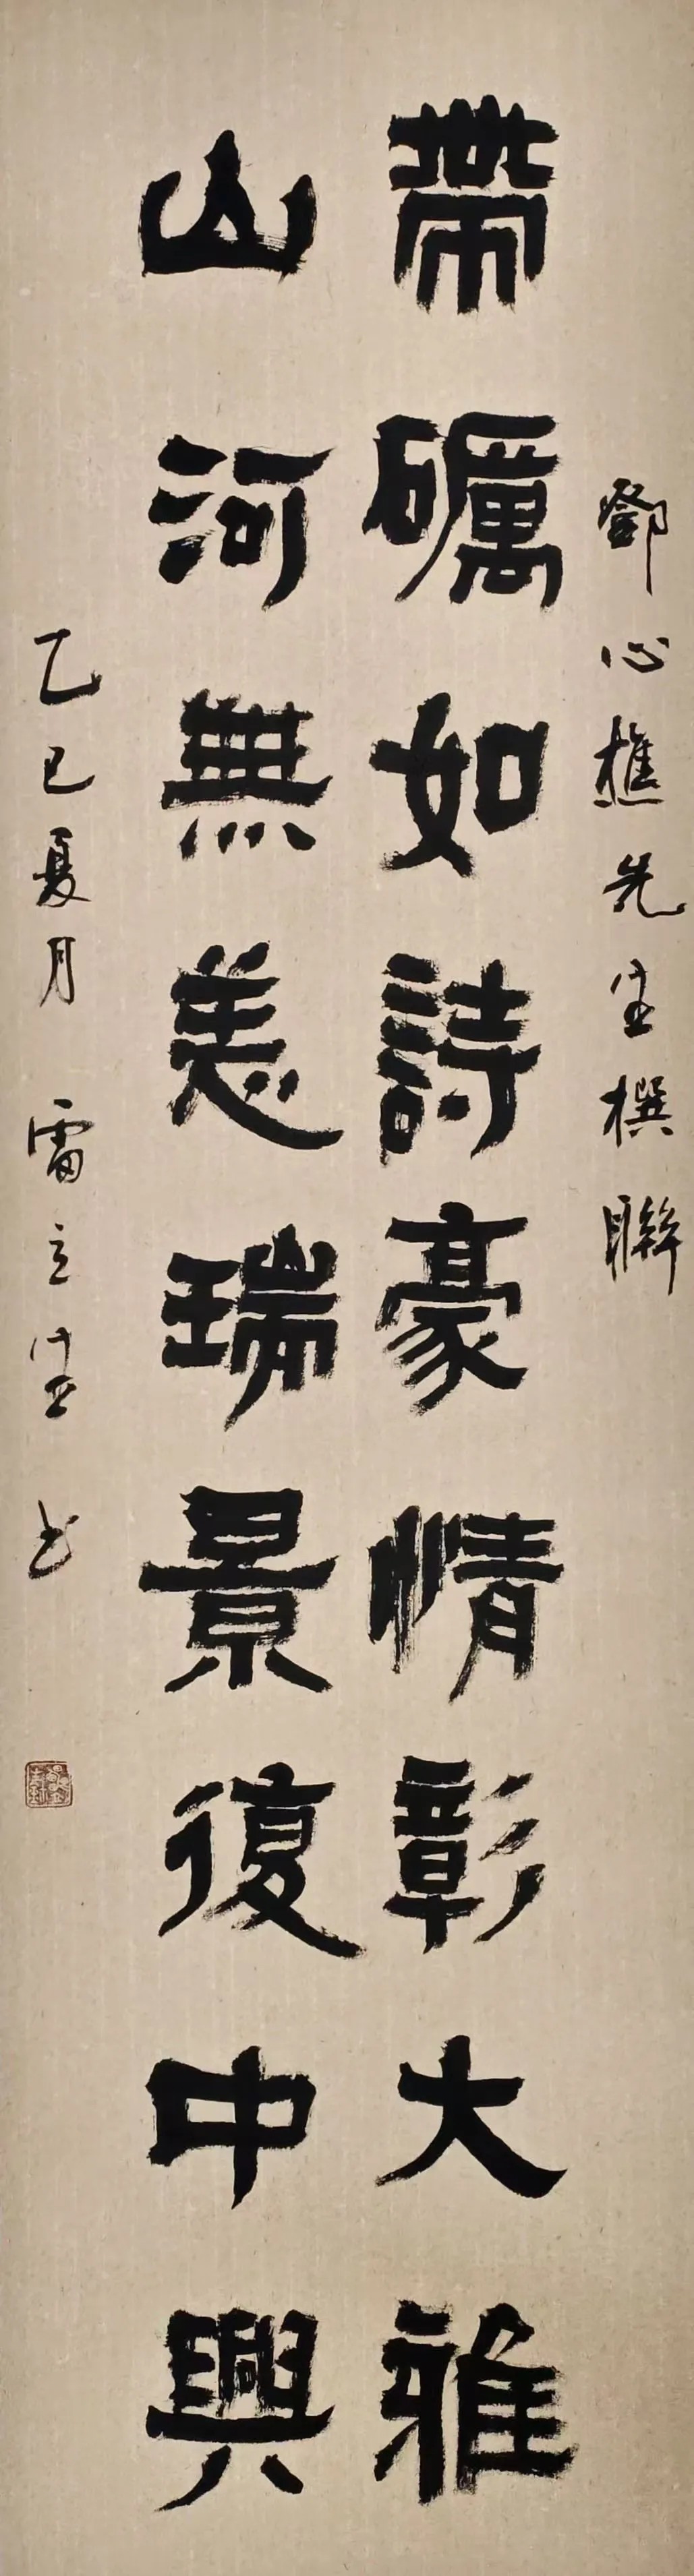 鄧心樵先生撰聯
帶礪如詩豪情彰大雅
山河無恙瑞景復中興
乙巳夏月 雷立生书